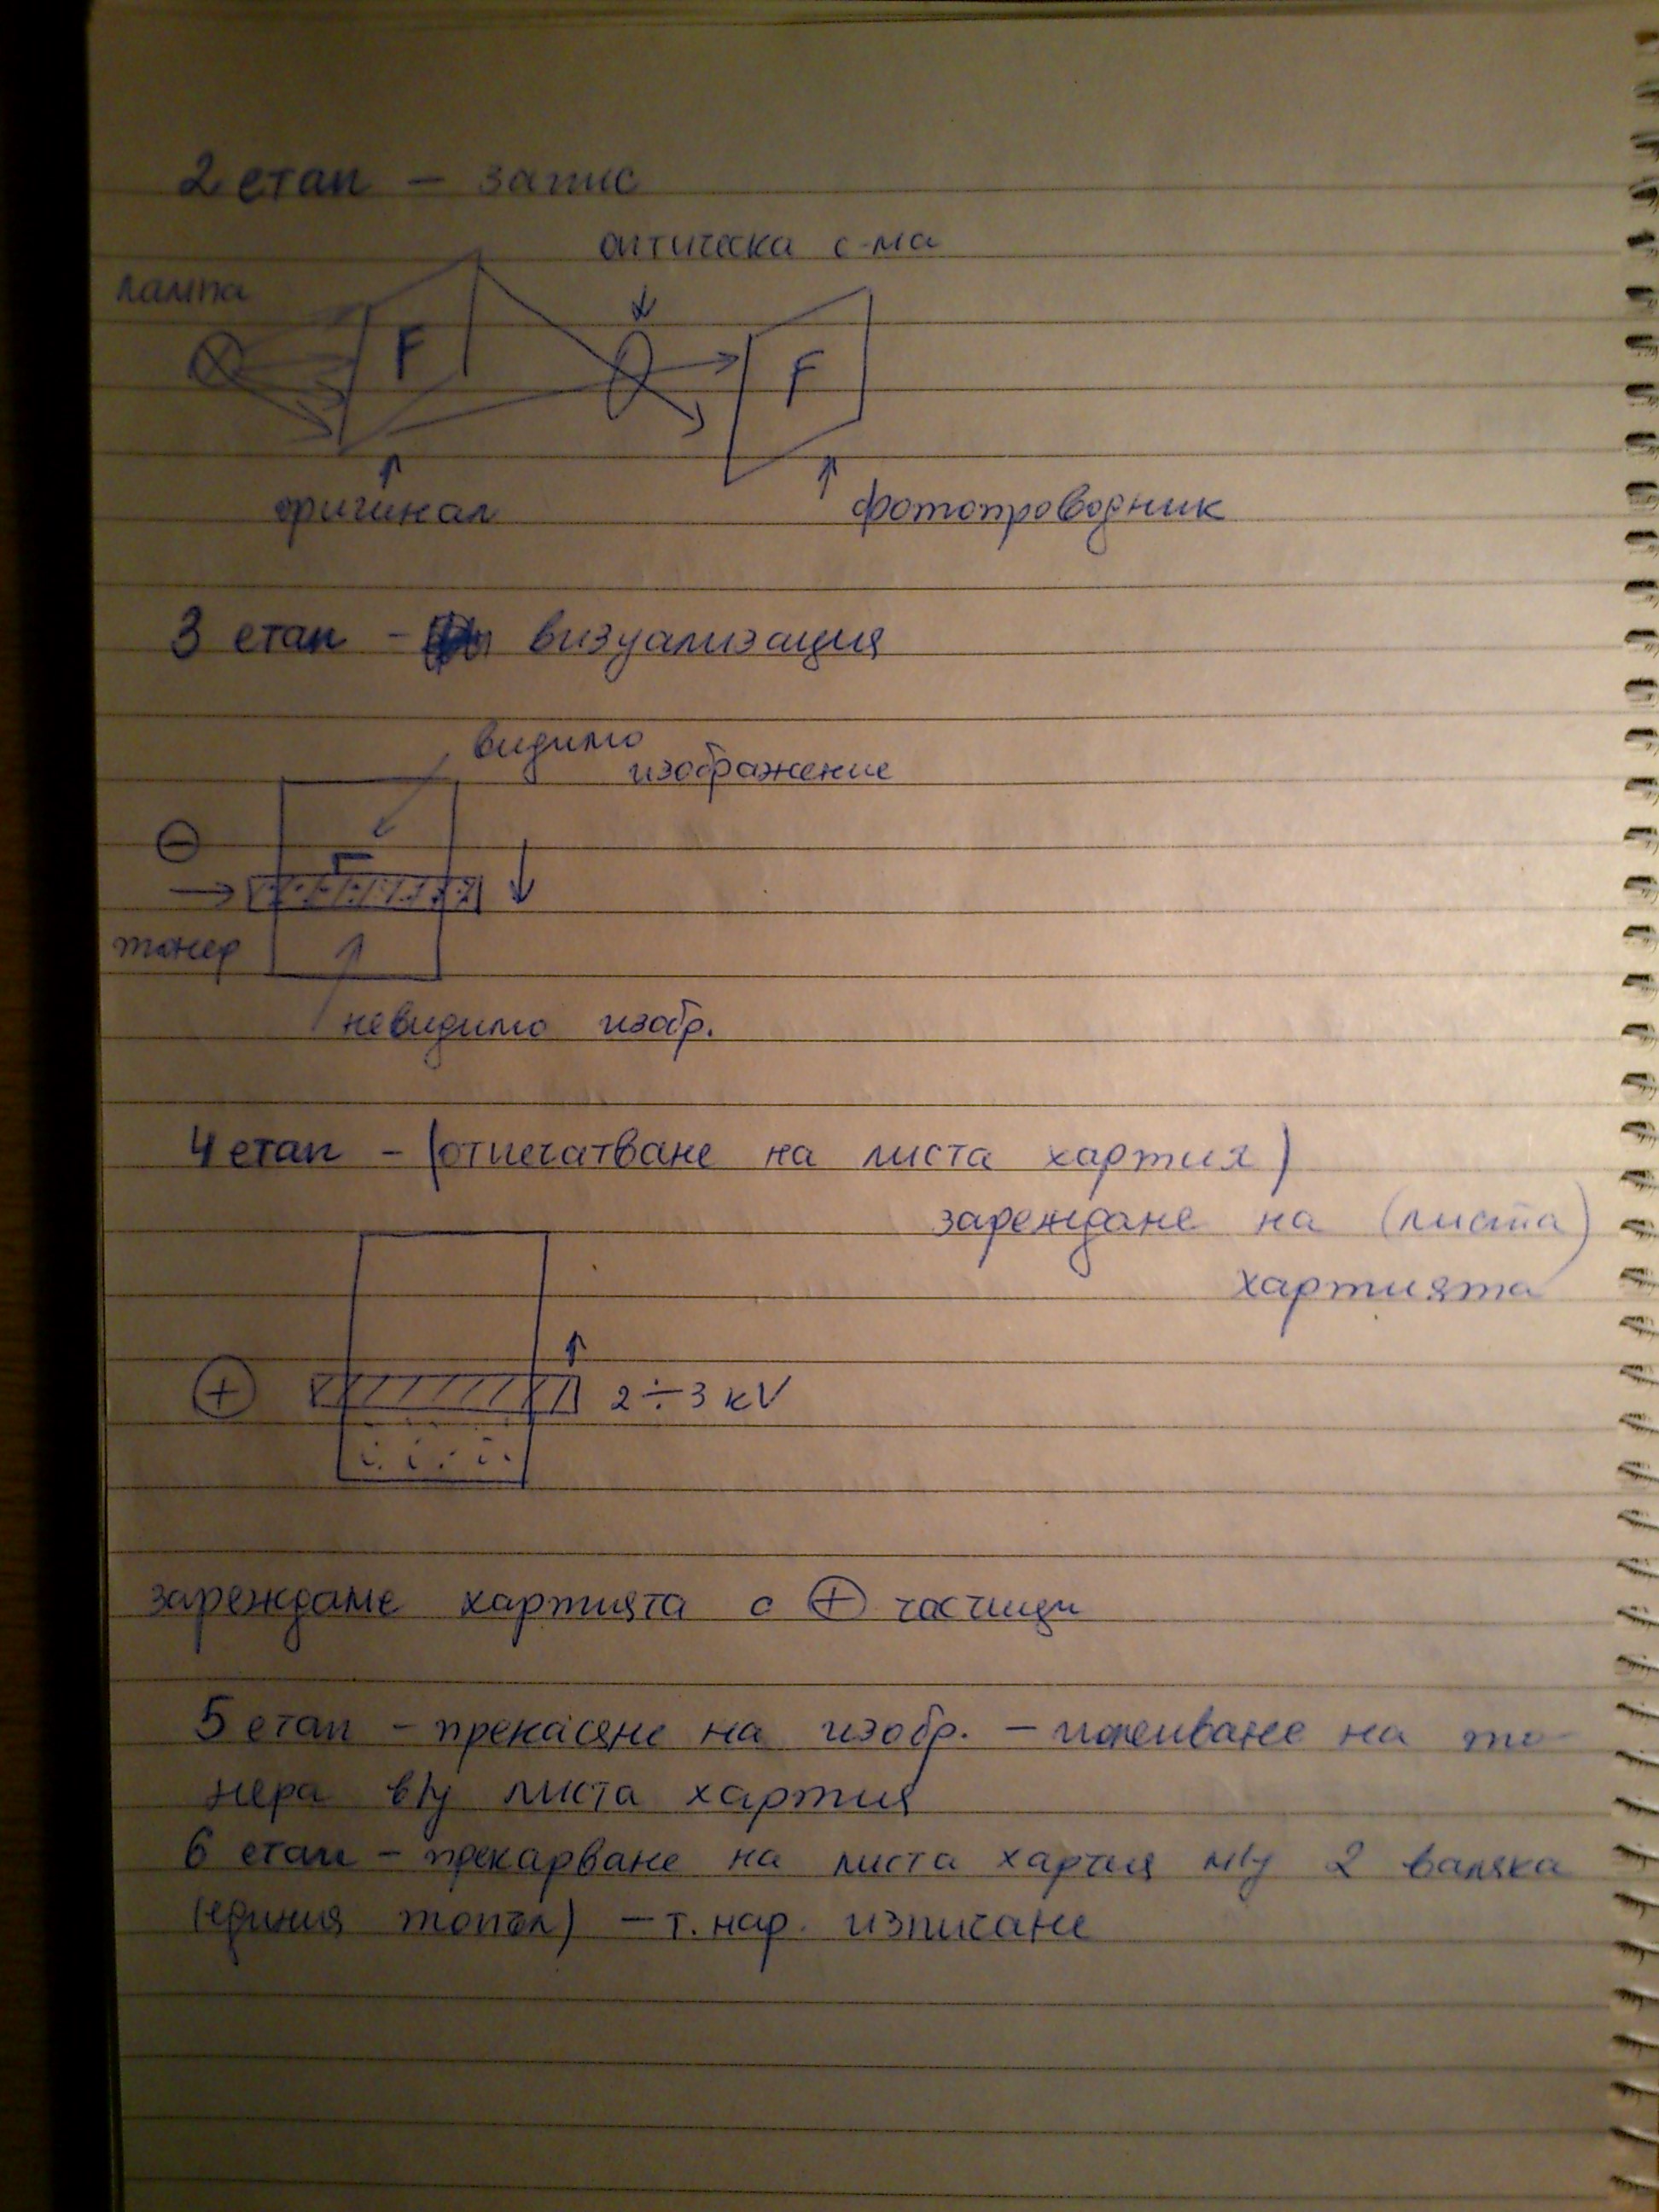 2 етап – запис
оптическа с-ма
лампа
F
F
оригинал
фотопроводник
3 етап – визуализация
видимо
изображение
⊖
тонер
невидимо изобр.
4 етап – (отпечатване на листа хартия)
зареждане на (листа)
хартията
⊕ 2÷3 kV
зареждаме хартията с ⊕ частици
5 етап – пренасяне на изобр. – попиване на то-
нера в/у листа хартия
6 етап – прекарване на листа хартия м/у 2 валяка
(единия топъл) – т. нар. изпичане